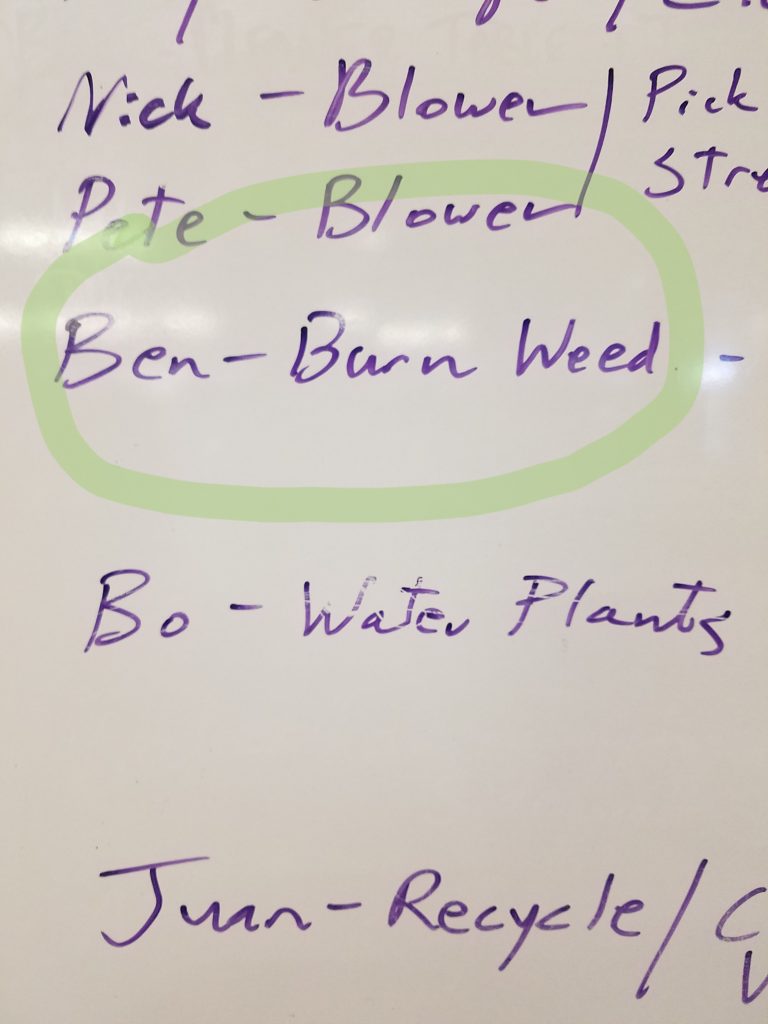 Nick - Blower / Pick
Pete - Blower
Ben - Burn Weed -
Bo - Water Plants
Juan - Recycle /